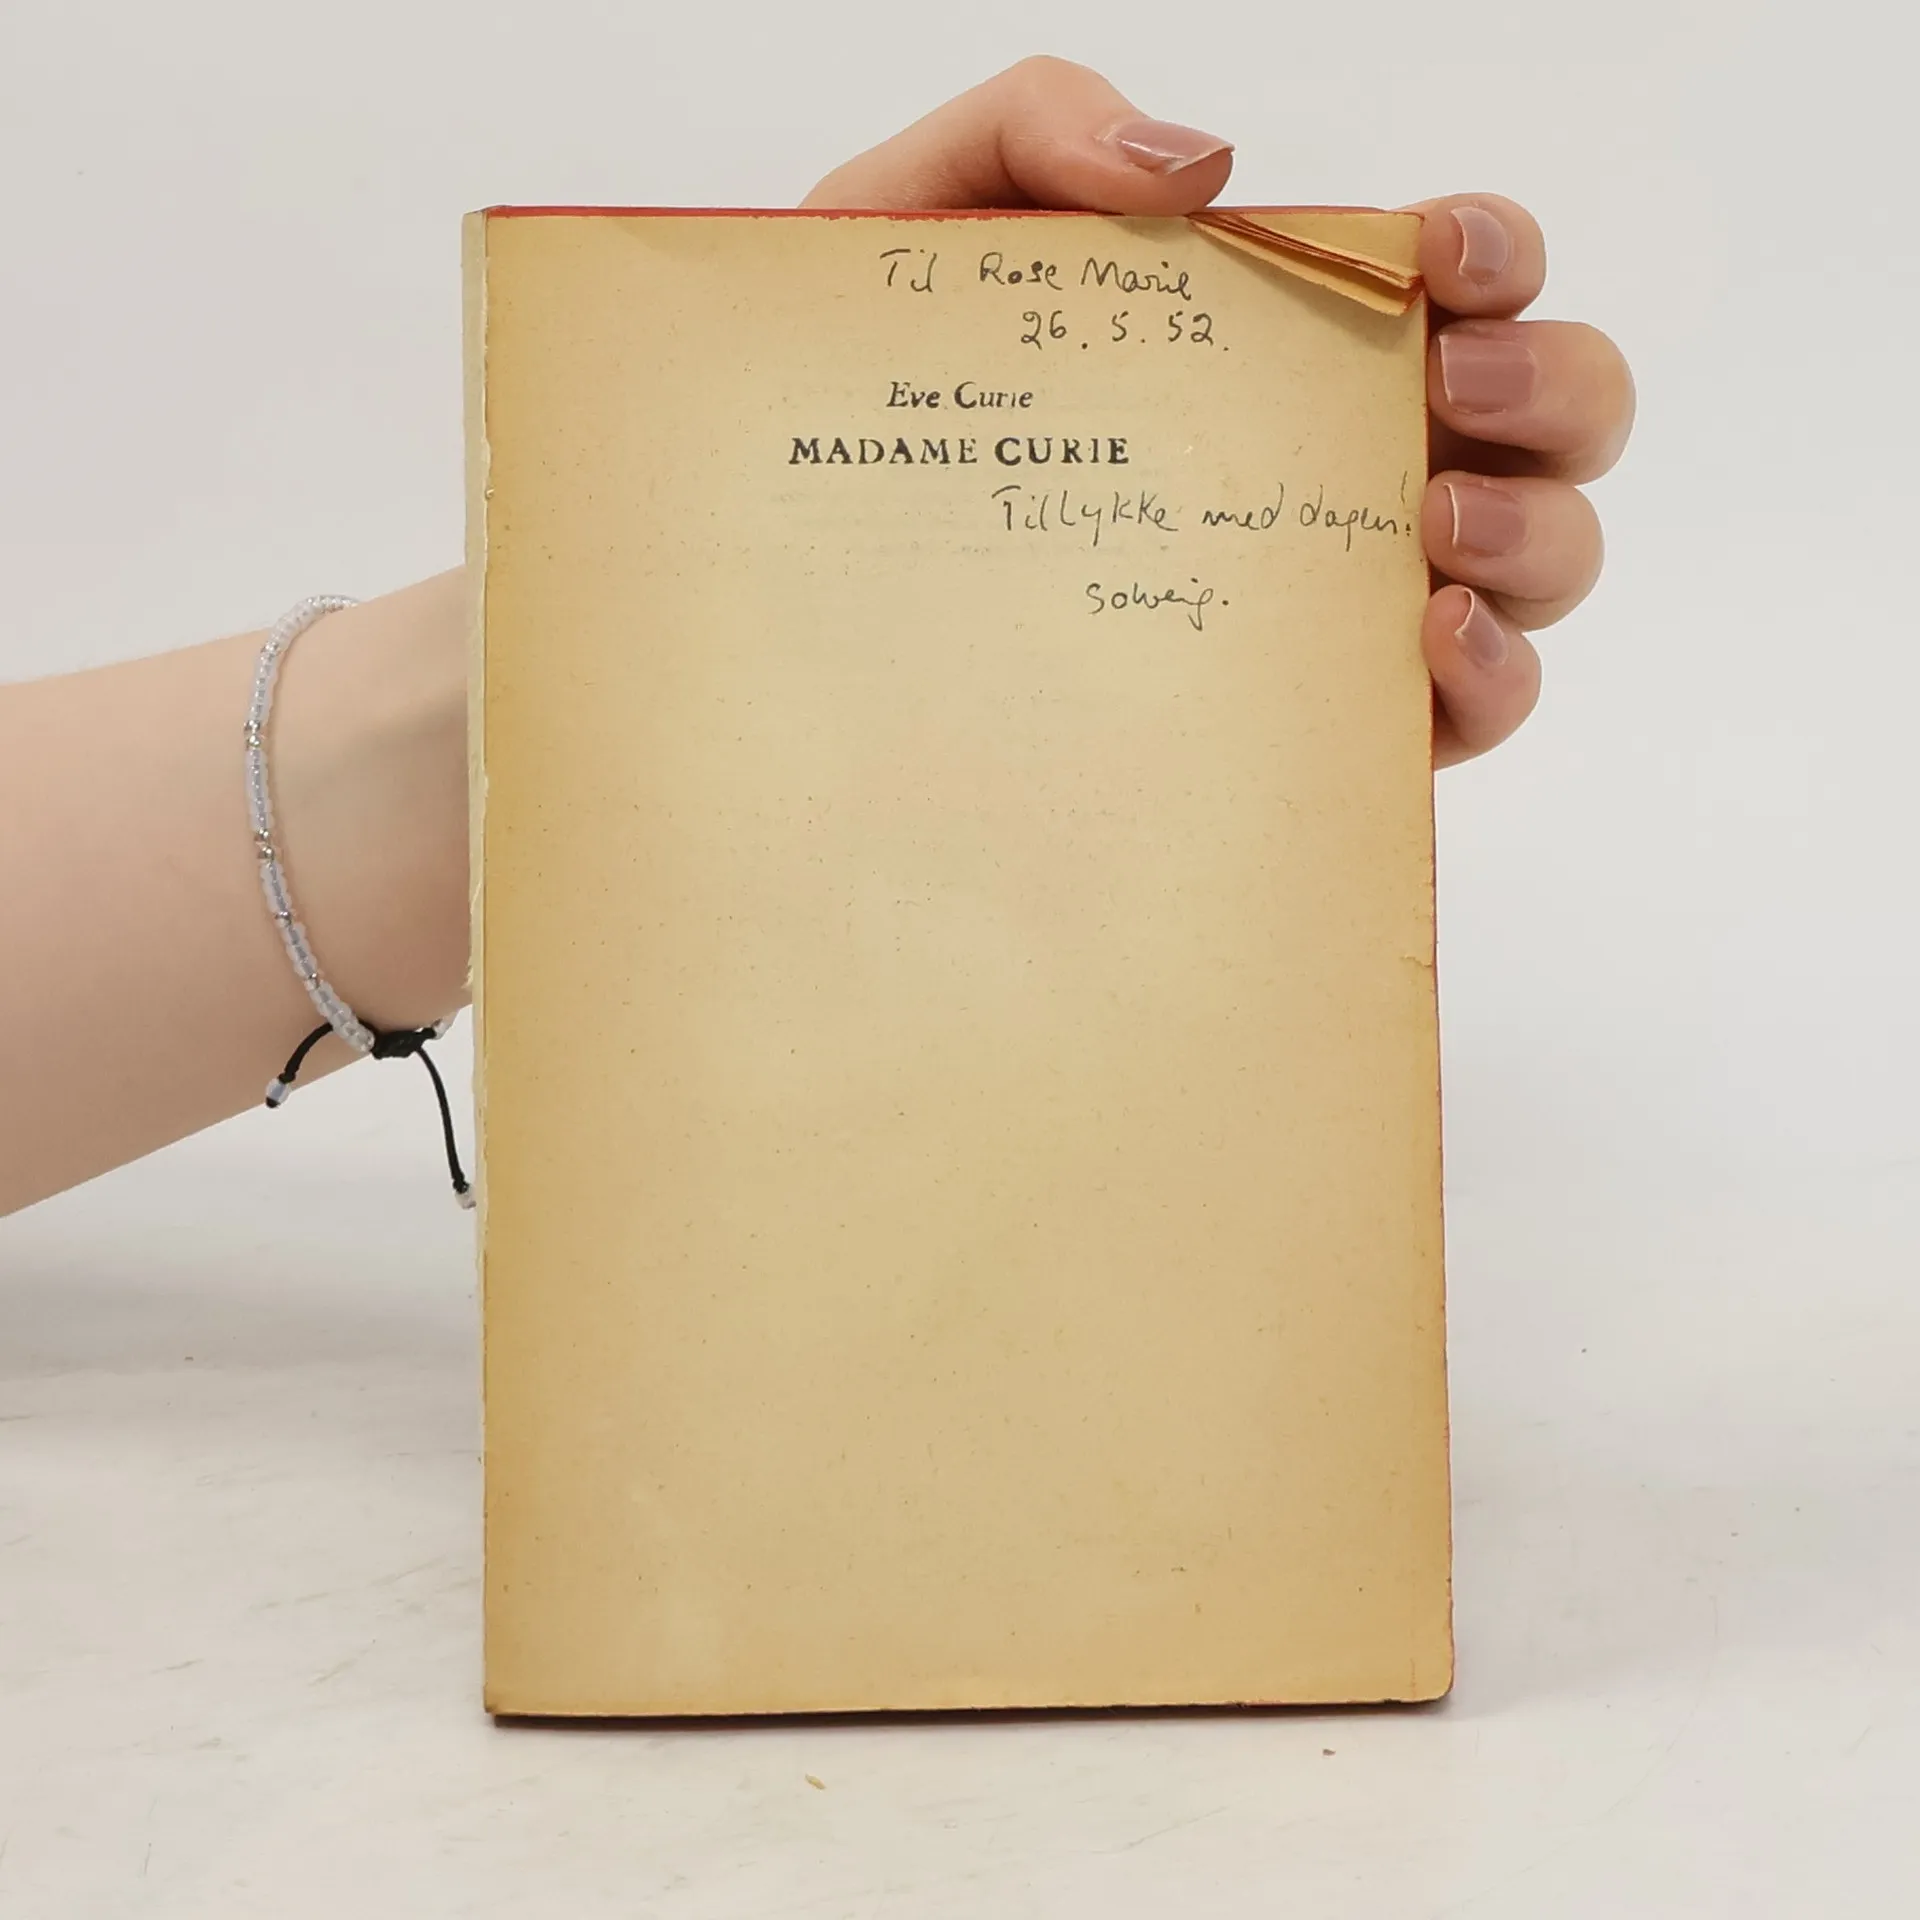 Til Rose Marie
26. 5. 52.
Eve Curie
MADAME CURIE
Tillykke med dagen!
Solveig.